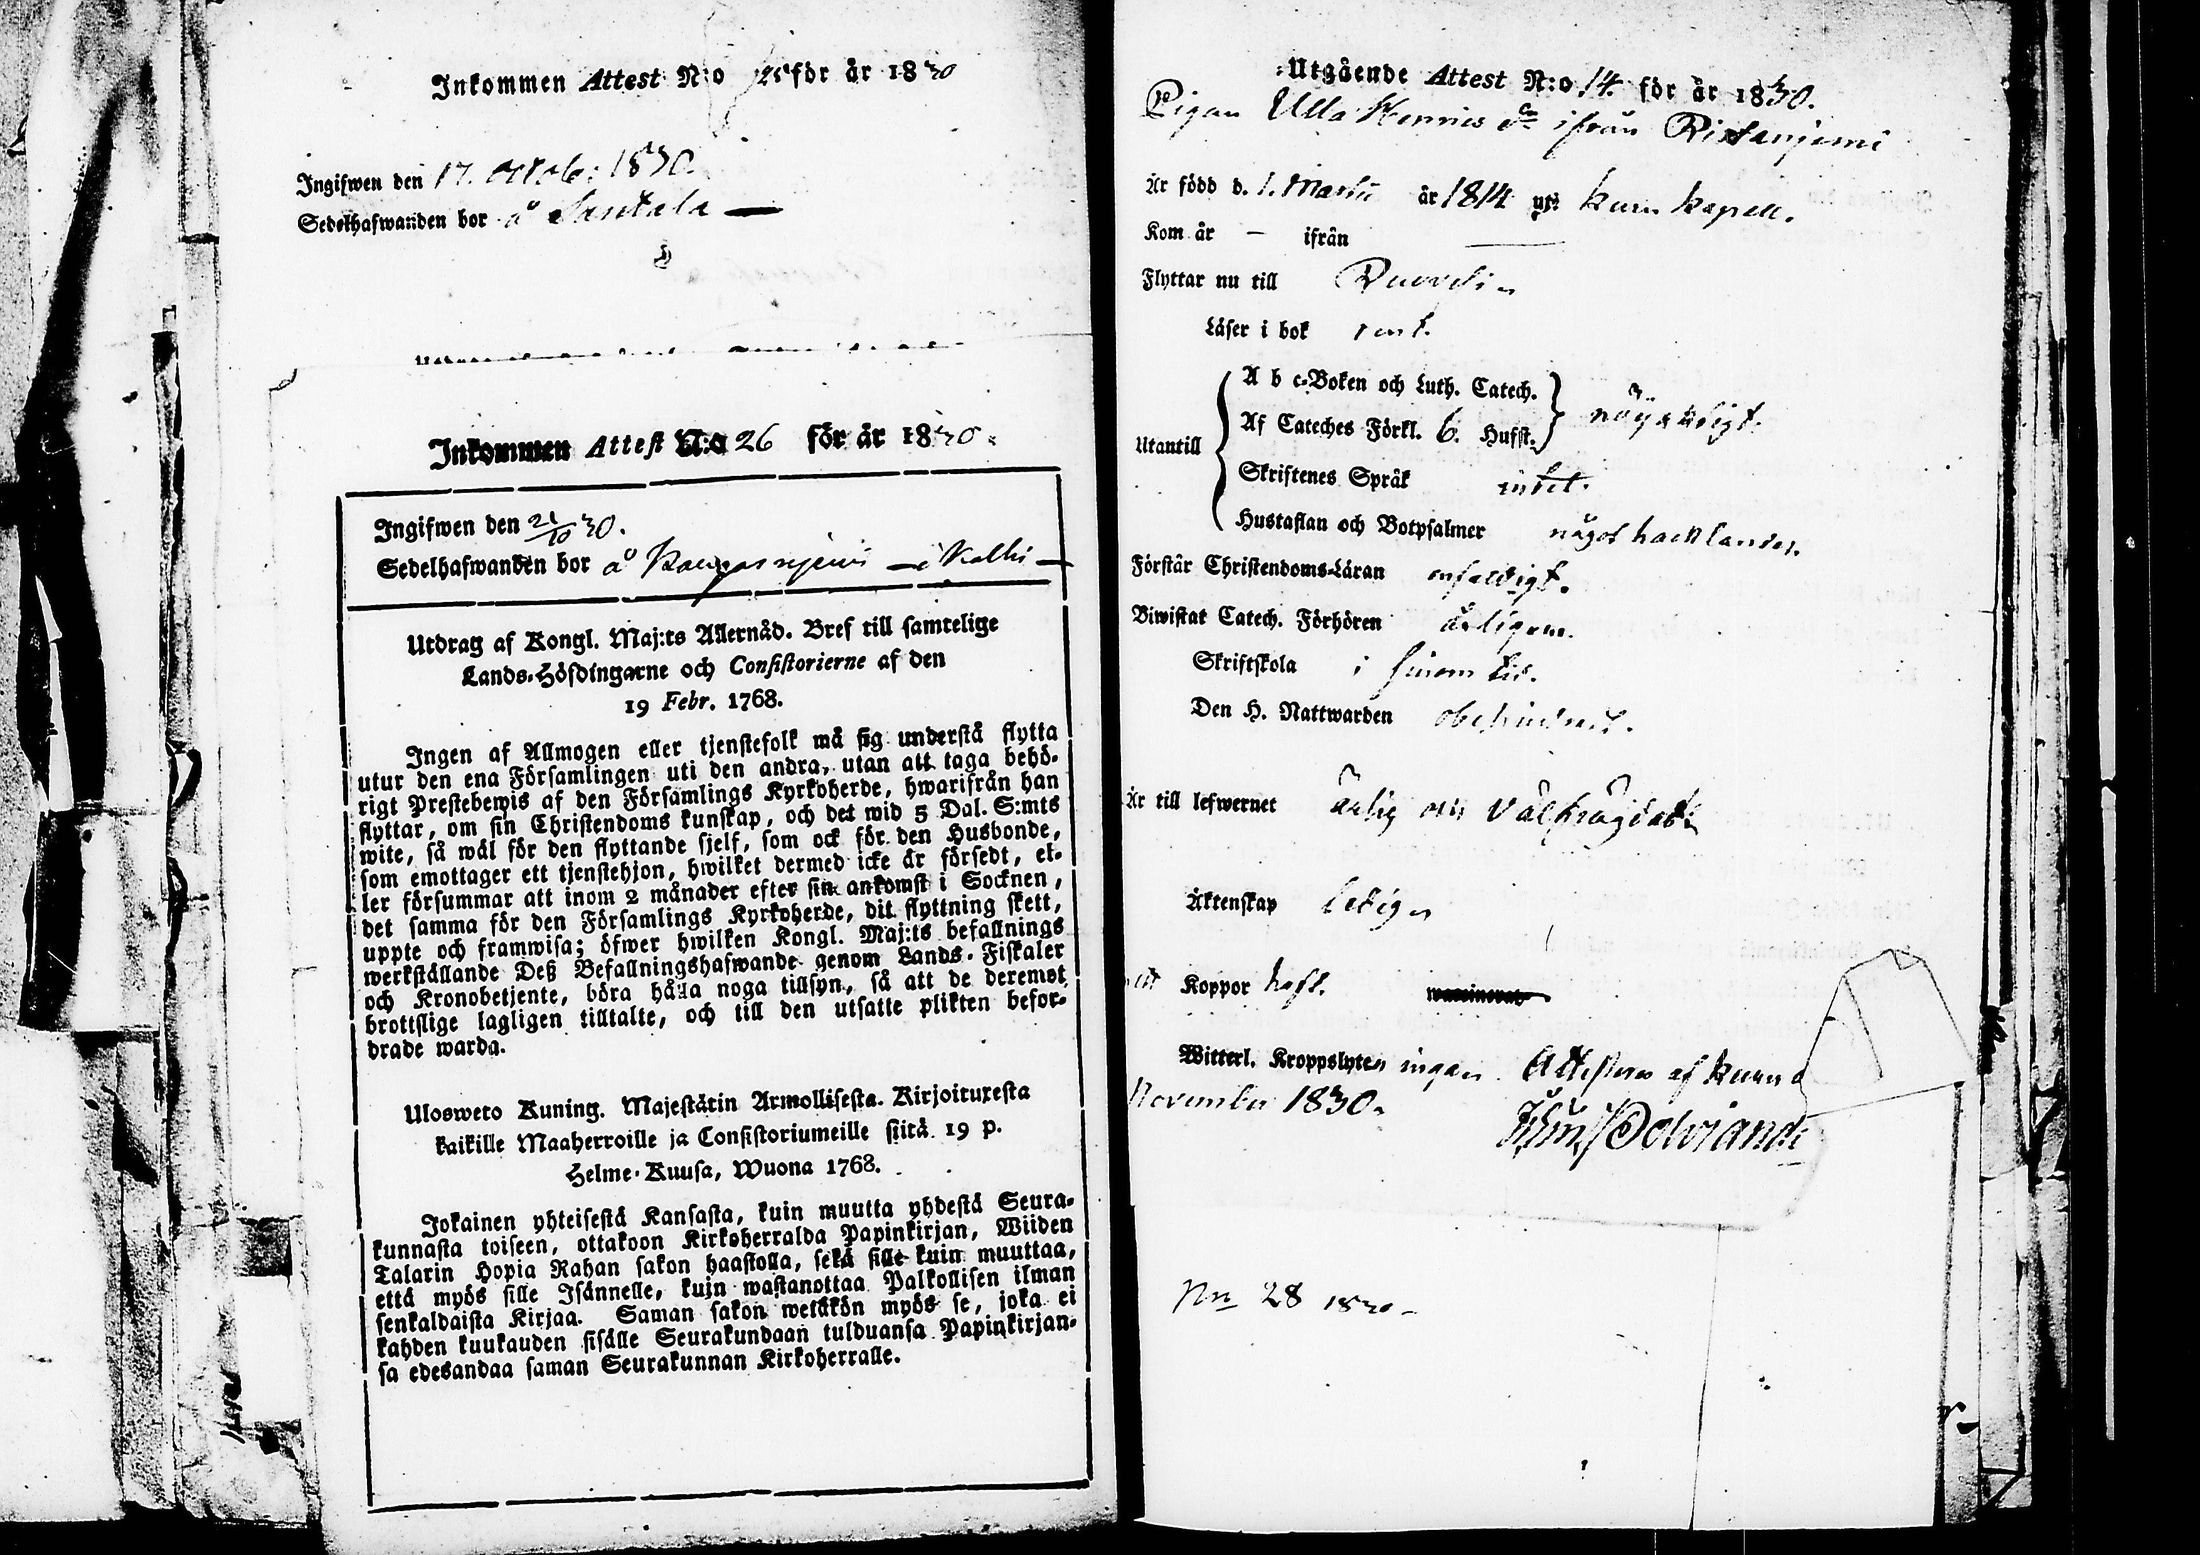 Inkommen Attest N:o 25 för år 1830
Ingifwen den 17. Octob: 1830.
Sedelhafwanden bor å Santala
Inkommen Attest N:o 26 för år 1830.
Ingifwen den 21/10 30.
Sedelhafwanden bor å
Utdrag af Kongl. Maj:ts Allernåd. Bref till samtelige
Lands-Höfdingarne och Consistorierne af den
19 Febr. 1768.
Ingen af Allmogen eller tjenstefolk må sig understå flytta
utur den ena Församlingen uti den andra, utan att taga behö-
rigt Prestebewis af den Församlings Kyrkoherde, hwarifrån han
flyttar, om sin Christendoms kunskap, och det wid 5 Dal. S:mts
wite, så wäl för den flyttande sjelf, som ock för den Husbonde,
som emottager ett tjenstehjon, hwilket dermed icke är försedt, el-
ler försummar att inom 2 månader efter sin ankomst i Socknen,
det samma för den Församlings Kyrkoherde, dit flyttning skett,
uppte och framwisa; öfwer hwilken Kongl. Maj:ts befallnings
werkställande Deß Befallningshafwande genom Lands-Fiskaler
och Kronobetjente, böra hålla noga tillsyn, så att de deremot
brottslige lagligen tilltalte, och till den utsatte plikten befor-
drade warda.
Ulosweto Kuning. Majestätin Armollisesta Kirjoituxesta
kaikille Maaherroille ja Consistoriumeille siitä 19 p.
Helme-Kuusa, Wuona 1768.
Jokainen yhteisestä Kansasta, kuin muutta yhdestä Seura-
kunnasta toiseen, ottakoon Kirkoherralda Papinkirjan, Wiiden
Talarin Hopia Rahan sakon haastolla, sekä sille kuin muuttaa,
että myös sille Isännelle, kuin wastanottaa Palkollisen ilman
senkaldaista Kirjaa. Saman sakon wetäkön myös se, joka ei
kahden kuukauden sisälle Seurakundaan tulduansa Papinkirjan-
sa edesandaa saman Seurakunnan Kirkoherralle.
Utgående Attest N:o 14. för år 1830.
Pigan Ulla Henrics dr ifrån Ristanjemi
Är född d. 1. Martii år 1814 uti Kuru Kapell.
Kom år — ifrån —
Flyttar nu till Ruovesi
Läser i bok rent.
Utantill
A b c-Boken och Luth. Catech.
Af Cateches Förkl. 6. Hufst.
nöjaktigt.
Skriftenes Språk intet.
Hustaflan och Botpsalmer något hacklande.
Förstår Christendoms-Läran enfaldigt.
Biwistat Catech. Förhören årligen.
Skriftskola i sinom tid.
Den H. Nattwarden obehindrat.
Är till lefwernet ärlig och välfrägdad
Äktenskap ledig
Koppor haft. waccinerad
Witterl. Kroppslyten inga. Attesteras af Kuru d
November 1830.
Nro 28 1830